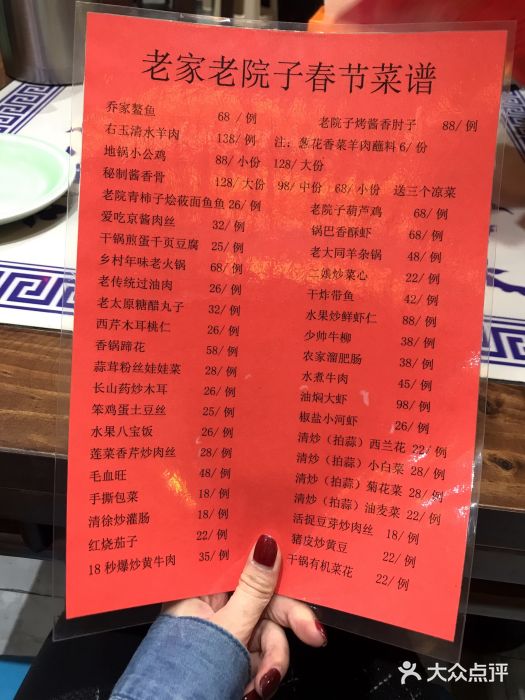 老家老院子春节菜谱
乔家鳌鱼 68/例 老院子烤酱香肘子 88/例
右玉清水羊肉 138/例 注：葱花香菜羊肉蘸料6/份
地锅小公鸡 88/小份 128/大份
秘制酱香骨 128/大份 98/中份 68/小份 送三个凉菜
老院青柿子烩莜面鱼鱼 26/例 老院子葫芦鸡 68/例
爱吃京酱肉丝 32/例 锅巴香酥虾 68/例
干锅煎蛋千页豆腐 25/例 老大同羊杂锅 48/例
乡村年味老火锅 68/例 二娘炒菜心 22/例
老传统过油肉 26/例 干炸带鱼 42/例
老太原糖醋丸子 32/例 水果炒鲜虾仁 88/例
西芹木耳桃仁 26/例 少帅牛柳 38/例
香锅蹄花 58/例 农家溜肥肠 38/例
蒜茸粉丝娃娃菜 28/例 水煮牛肉 45/例
长山药炒木耳 26/例 油焖大虾 98/例
笨鸡蛋土豆丝 25/例 椒盐小河虾 26/例
水果八宝饭 26/例 清炒（拍蒜）西兰花 22/例
莲菜香芹炒肉丝 28/例 清炒（拍蒜）小白菜 28/例
毛血旺 48/例 清炒（拍蒜）菊花菜 28/例
手撕包菜 18/例 清炒（拍蒜）油麦菜 22/例
清徐炒灌肠 18/例 活捉豆芽炒肉丝 18/例
红烧茄子 22/例 猪皮炒黄豆 22/例
18秒爆炒黄牛肉 35/例 干锅有机菜花 22/例
大众点评